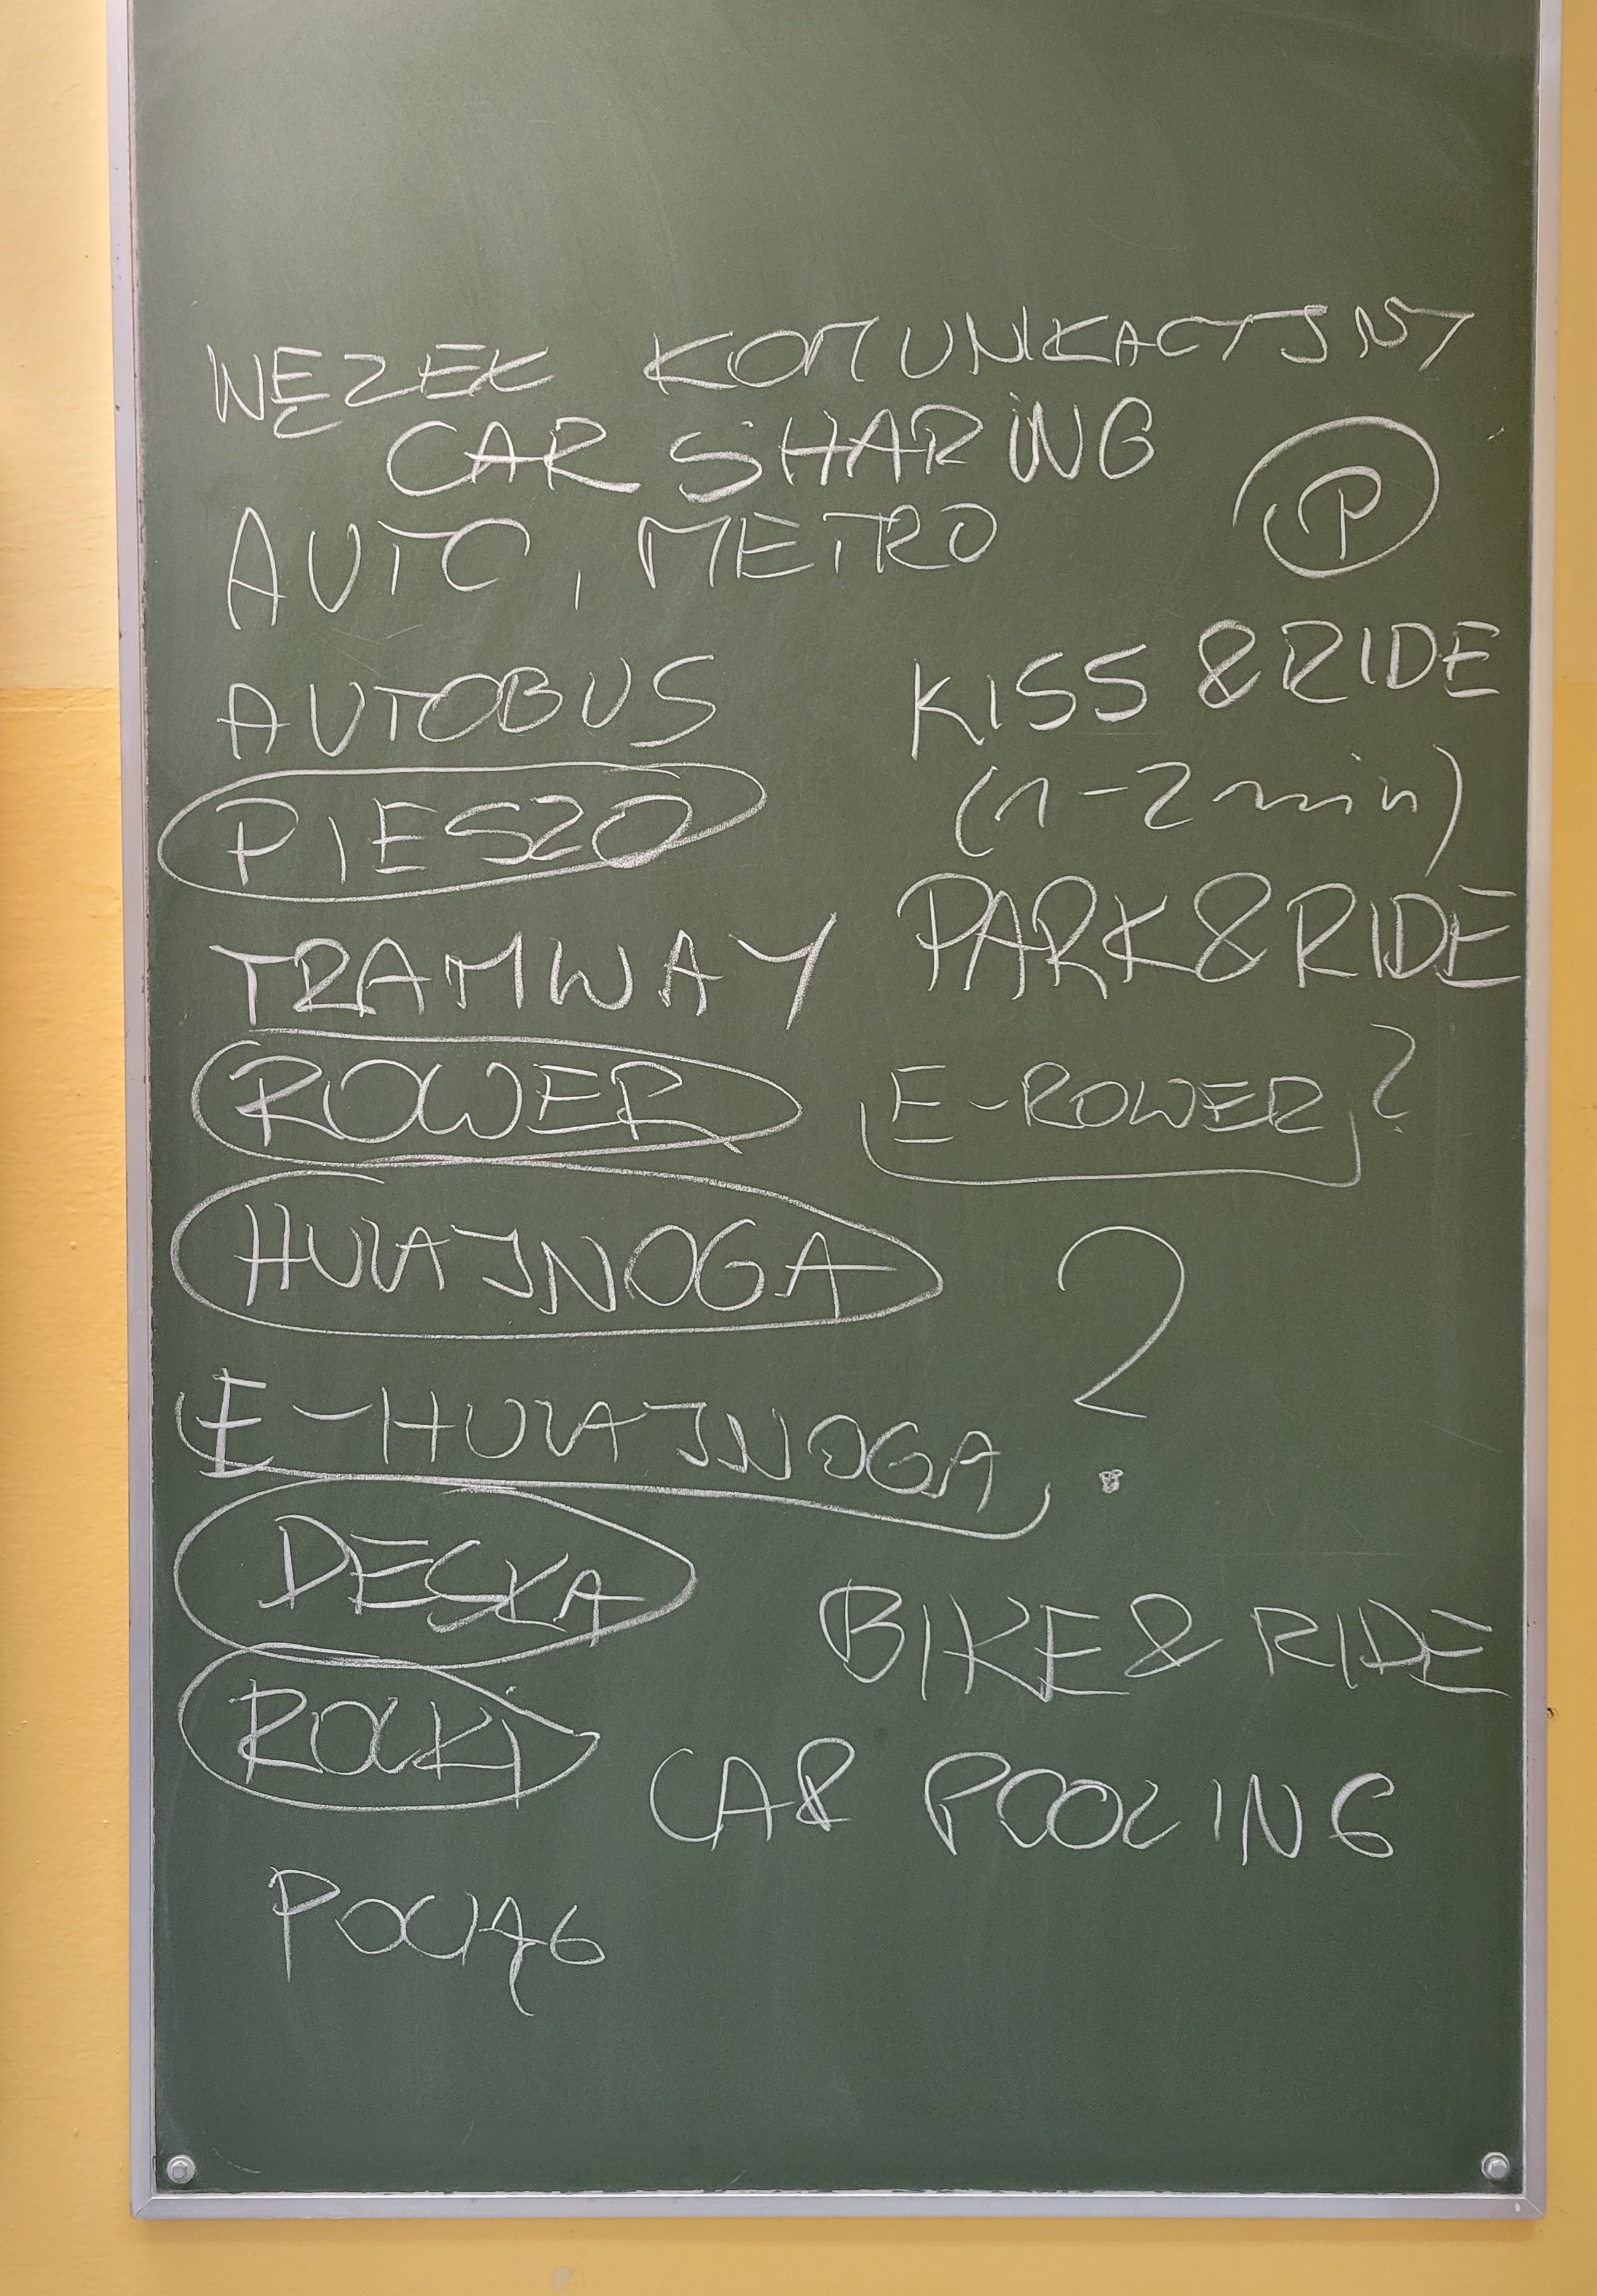 WĘZEŁ KOMUNIKACYJNY
CAR SHARING
AUTO, METRO
P
AUTOBUS
KISS & RIDE
(1-2 min)
PIESZO
TRAMWAY
PARK & RIDE
ROWER
E-ROWER?
HULAJNOGA
E-HULAJNOGA ?
DESKA
BIKE & RIDE
ROLKI
CAR POOLING
POCIĄG